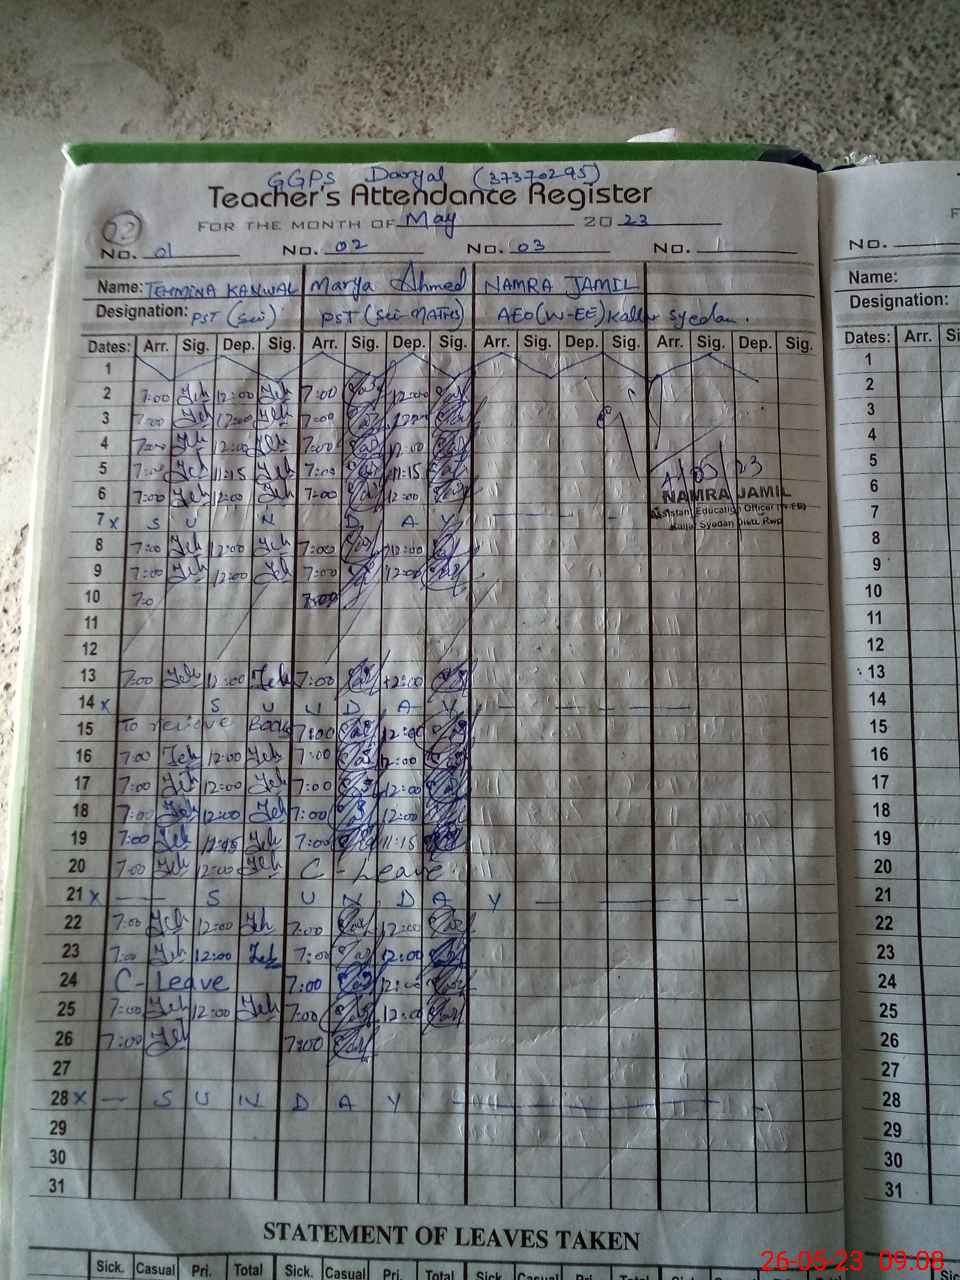 GGPS Daryal (37370295)
Teacher's Attendance Register
FOR THE MONTH OF May 2023
02
No. 01 No. 02 No. 03 No.
Name: TEHMINA KANWAL Marya Ahmed NAMRA JAMIL
Designation: PST (Sci) PST (Sci-MATHS) AEO (W-EE) Kallar Syedan.
Dates: Arr. Sig. Dep. Sig. Arr. Sig. Dep. Sig. Arr. Sig. Dep. Sig. Arr. Sig. Dep. Sig.
1
2 7:00 Teh 12:00 Teh 7:00 12:00
3 7:00 Teh 12:00 Teh 7:00 12:00
4 7:00 Teh 12:00 Teh 7:00 12:00
5 7:00 Teh 11:15 Teh 7:00 11:15 4/05/23
6 7:00 Teh 12:00 Teh 7:00 12:00 NAMRA JAMIL
Assistant Education Officer (W-EE)
7 x S U N D A Y
Kallar Syedan Distt. Rwp
8 7:00 Teh 12:00 Teh 7:00 12:00
9 7:00 Teh 12:00 Teh 7:00 12:00
10 7:0 7:00
11
12
13 7:00 Teh 12:00 Teh 7:00 12:00
14 x S U N D A Y
15 To recieve Books 7:00 12:00
16 7:00 Teh 12:00 Teh 7:00 12:00
17 7:00 Teh 12:00 Teh 7:00 12:00
18 7:00 Teh 12:00 Teh 7:00 12:00
19 7:00 Teh 11:15 Teh 7:00 11:15
20 7:00 Teh 12:00 Teh C-Leave
21 x S U N D A Y
22 7:00 Teh 12:00 Teh 7:00 12:00
23 7:00 Teh 12:00 Teh 7:00 12:00
24 C-Leave 7:00 12:00
25 7:00 Teh 12:00 Teh 7:00 12:00
26 7:00 Teh 7:00
27
28 x S U N D A Y
29
30
31
STATEMENT OF LEAVES TAKEN
Sick. Casual Pri. Total Sick. Casual Pri. Total Sick. Casual Pri. Total Sick.
No.
Name:
Designation:
Dates: Arr.
1
2
3
4
5
6
7
8
9
10
11
12
13
14
15
16
17
18
19
20
21
22
23
24
25
26
27
28
29
30
31
26-05-23 09:08